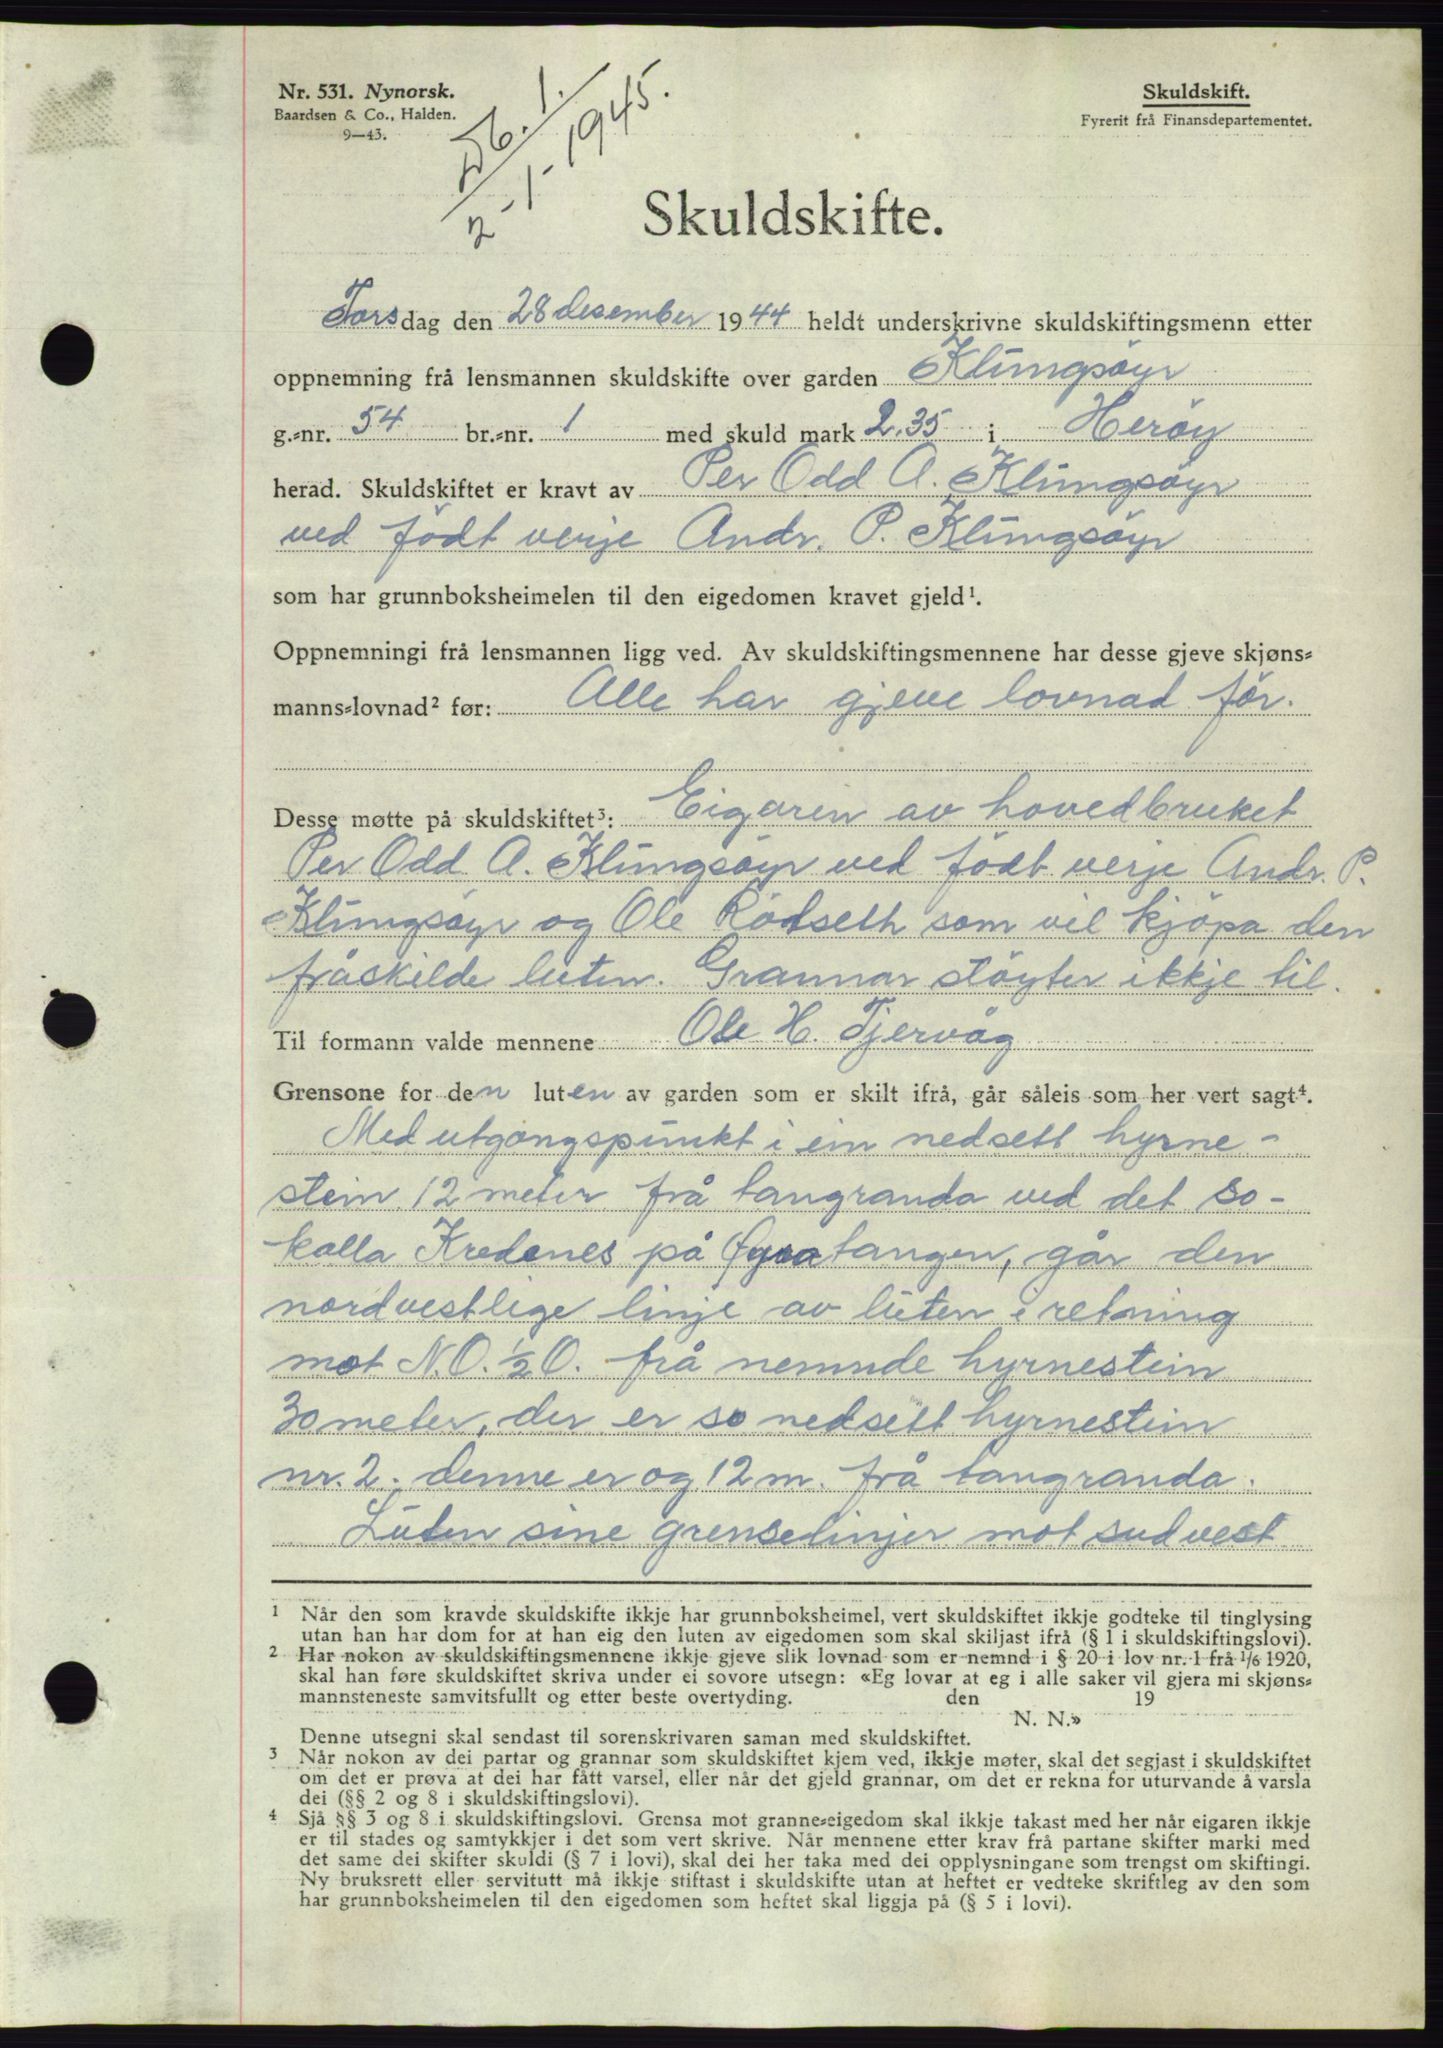 Nr. 531. Nynorsk.
Baardsen & Co., Halden.
9—43.
Db. 1.
2-1-1945.
Skuldskift.
Fyrerit frå Finansdepartementet.
Skuldskifte.
Torsdag den 28 desember 1944 heldt underskrivne skuldskiftingsmenn etter
oppnemning frå lensmannen skuldskifte over garden Klungsöyr
g.=nr. 54 br.=nr. 1 med skuld mark 2,35 i Heröy
herad. Skuldskiftet er kravt av Per Odd A. Klungsöyr
ved födt verje Andr. P. Klungsöyr
som har grunnboksheimelen til den eigedomen kravet gjeld¹.
Oppnemningi frå lensmannen ligg ved. Av skuldskiftingsmennene har desse gjeve skjøns=
manns=lovnad² før: Alle har gjeve lovnad för.
Desse møtte på skuldskiftet³: Eigaren av hovedbruket
Per Odd A. Klungsöyr ved födt verje Andr. P.
Klungsöyr og Ole Rödseth som vil kjöpa den
fråskilde luten. Grannar stöyter ikkje til.
Til formann valde mennene Ole H. Tjervåg
Grensone for den luten av garden som er skilt ifrå, går såleis som her vert sagt⁴.
Med utgangspunkt i ein nedsett hyrne-
stein 12 meter frå tangranda ved det so-
kalla Kredenes på tangen, går den
nordvestlige linje av luten i retning
mot N.O. ½ O. frå nemnde hyrnestein
30 meter, der er so nedsett hyrnestein
nr. 2. denne er og 12 m. frå tangranda.
Luten sine grenselinjer mot sudvest
1 Når den som kravde skuldskifte ikkje har grunnboksheimel, vert skuldskiftet ikkje godteke til tinglysing
utan han har dom for at han eig den luten av eigedomen som skal skiljast ifrå (§ 1 i skuldskiftingslovi).
2 Har nokon av skuldskiftingsmennene ikkje gjeve slik lovnad som er nemnd i § 20 i lov nr. 1 frå 1/6 1920,
skal han føre skuldskiftet skriva under ei sovore utsegn: «Eg lovar at eg i alle saker vil gjera mi skjøns=
mannsteneste samvitsfullt og etter beste overtyding. den 19
N. N.»
Denne utsegni skal sendast til sorenskrivaren saman med skuldskiftet.
3 Når nokon av dei partar og grannar som skuldskiftet kjem ved, ikkje møter, skal det segjast i skuldskiftet
om det er prøva at dei har fått varsel, eller når det gjeld grannar, om det er rekna for uturvande å varsla
dei (§§ 2 og 8 i skuldskiftingslovi).
4 Sjå §§ 3 og 8 i skuldskiftingslovi. Grensa mot granne=eigedom skal ikkje takast med her når eigaren ikkje
er til stades og samtykkjer i det som vert skrive. Når mennene etter krav frå partane skifter marki med
det same dei skifter skuldi (§ 7 i lovi), skal dei her taka med dei opplysningane som trengst om skiftingi.
Ny bruksrett eller servitutt må ikkje stiftast i skuldskifte utan at heftet er vedteke skriftleg av den som
har grunnboksheimelen til den eigedomen som heftet skal liggja på (§ 5 i lovi).